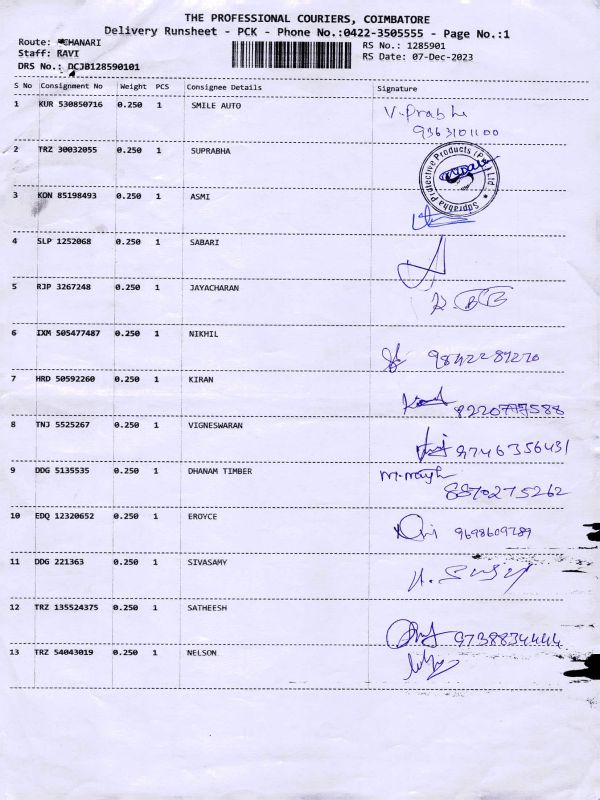 THE PROFESSIONAL COURIERS, COIMBATORE
Delivery Runsheet - PCK - Phone No.:0422-3505555 - Page No.:1
Route: CHANARI
Staff: RAVI
DRS No.: DCJB128590101
RS No.: 1285901
RS Date: 07-Dec-2023
S No Consignment No Weight PCS Consignee Details Signature
1 KUR 530850716 0.250 1 SMILE AUTO V. Prabhu
9363101100
2 TRZ 30032055 0.250 1 SUPRABHA
Suprabha Protective Products (P) Ltd
3 KON 85198493 0.250 1 ASMI
4 SLP 1252068 0.250 1 SABARI
5 RJP 3267248 0.250 1 JAYACHARAN
6 IXM 505477487 0.250 1 NIKHIL
7 HRD 50592260 0.250 1 KIRAN
8 TNJ 5525267 0.250 1 VIGNESWARAN 9746356431
9 DDG 5135535 0.250 1 DHANAM TIMBER
8870275262
10 EDQ 12320652 0.250 1 EROYCE
11 DDG 221363 0.250 1 SIVASAMY
12 TRZ 135524375 0.250 1 SATHEESH
9738834444
13 TRZ 54043019 0.250 1 NELSON